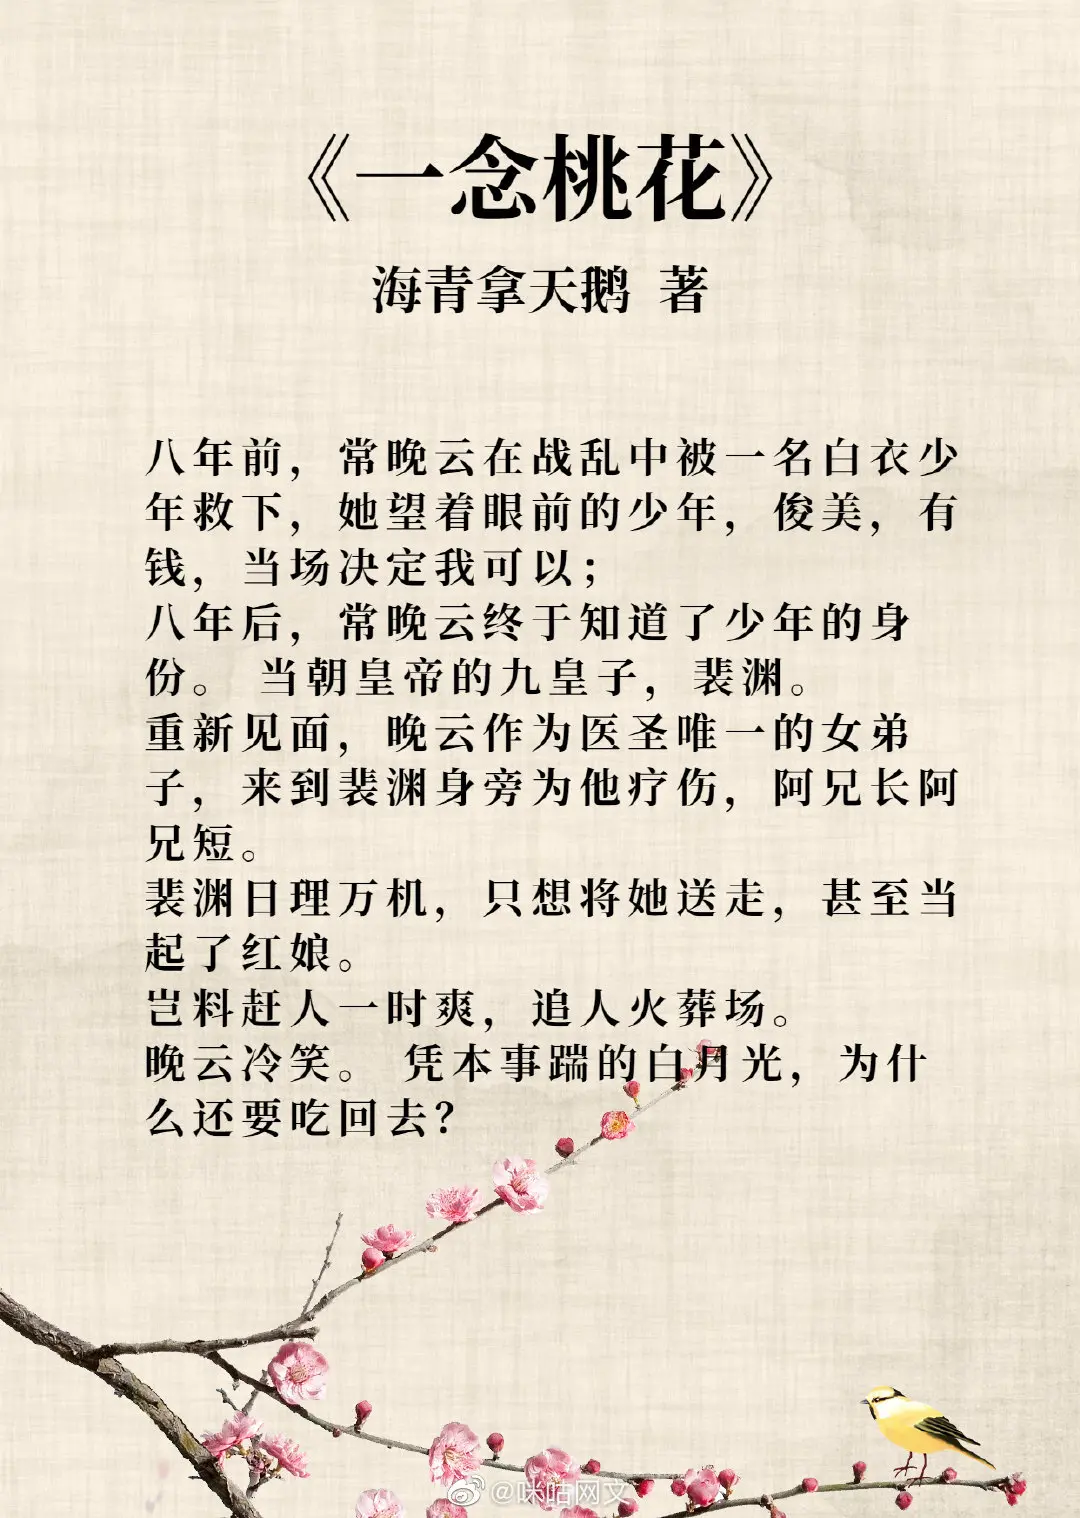 《一念桃花》
海青拿天鹅 著
八年前，常晚云在战乱中被一名白衣少
年救下，她望着眼前的少年，俊美，有
钱，当场决定我可以；
八年后，常晚云终于知道了少年的身
份。 当朝皇帝的九皇子，裴渊。
重新见面，晚云作为医圣唯一的女弟
子，来到裴渊身旁为他疗伤，阿兄长阿
兄短。
裴渊日理万机，只想将她送走，甚至当
起了红娘。
岂料赶人一时爽，追人火葬场。
晚云冷笑。 凭本事踹的白月光，为什
么还要吃回去？
@咪咕网文